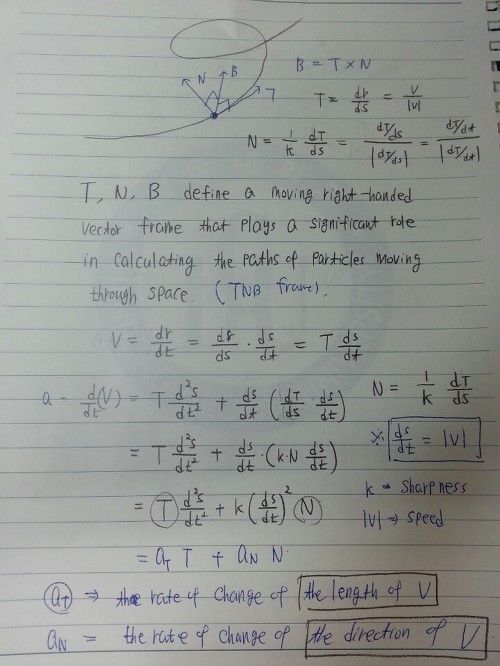 N B T
B = T × N
T = dr/ds = V/|V|
N = 1/k dT/ds = dT/ds / |dT/ds| = dT/dt / |dT/dt|
T, N, B define a moving right-handed
vector frame that plays a significant role
in calculating the paths of particles moving
through space. (TNB frame).
V = dr/dt = dr/ds · ds/dt = T ds/dt
a - d/dt(V) = T d²s/dt² + ds/dt (dT/ds · ds/dt) N = 1/k dT/ds
= T d²s/dt² + ds/dt · (k·N ds/dt) ※ ds/dt = |V|
= T d²s/dt² + k(ds/dt)² N k → sharpness
|V| → speed
= aT T + aN N
aT ⇒ the rate of change of the length of V
aN = the rate of change of the direction of V